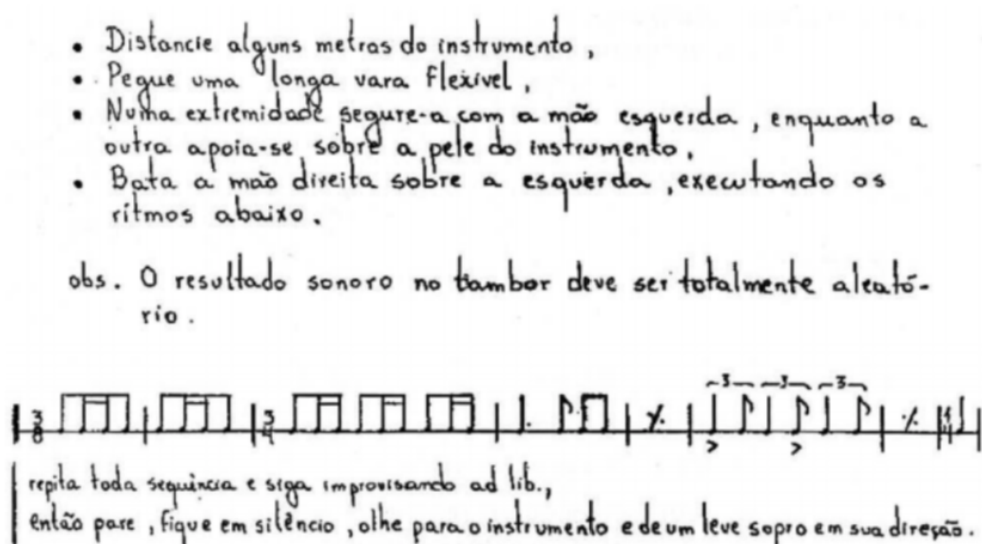 • Distancie alguns metros do instrumento,
• Pegue uma longa vara flexível,
• Numa extremidade segure-a com a mão esquerda, enquanto a
outra apoia-se sobre a pele do instrumento,
• Bata a mão direita sobre a esquerda, executando os
ritmos abaixo.
obs. O resultado sonoro no tambor deve ser totalmente aleató-
rio.
3 3 3
3/8 3/4 1/4
repita toda sequência e siga improvisando ad lib.,
então pare, fique em silêncio, olhe para o instrumento e de um leve sopro em sua direção.